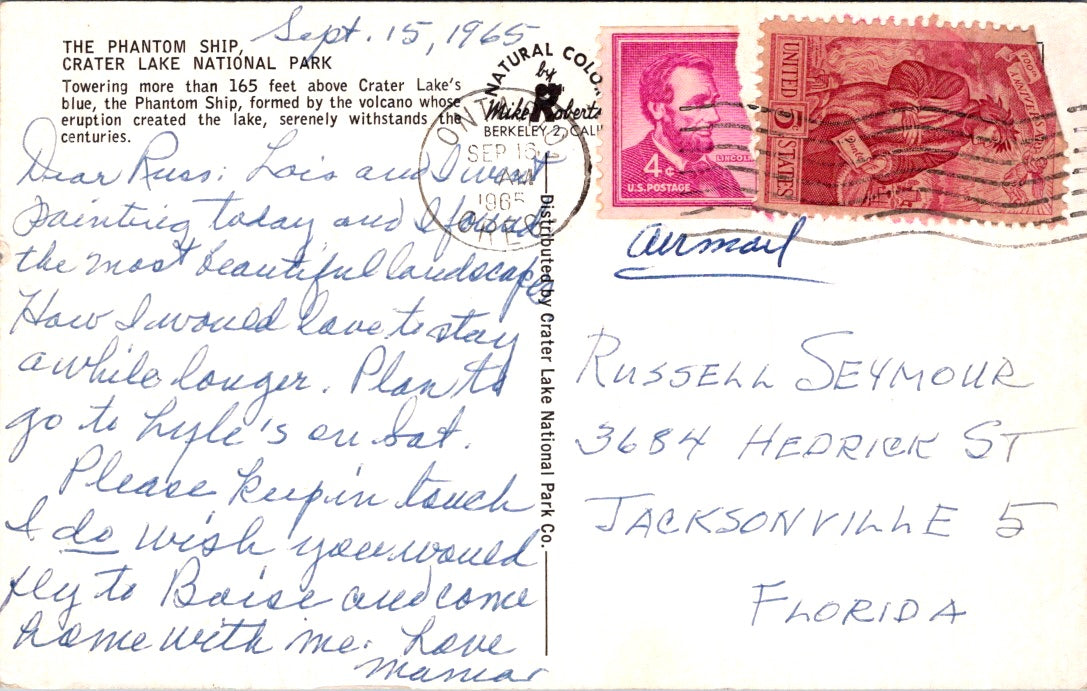 Sept. 15, 1965
THE PHANTOM SHIP,
CRATER LAKE NATIONAL PARK
Towering more than 165 feet above Crater Lake's
blue, the Phantom Ship, formed by the volcano whose
eruption created the lake, serenely withstands the
centuries.
Dear Russ: Lois and I went
painting today and I found
the most beautiful landscape
How I would love to stay
awhile longer. Plan to
go to Lyle's on Sat.
Please keep in touch
I do wish you would
fly to Boise and come
home with me. Love
NATURAL COLOR
by
Mike Roberts
BERKELEY 2, CALIF
SEP 16
AM
1965
Distributed by Crater Lake National Park Co.
4¢
LINCOLN
U.S. POSTAGE
UNITED STATES
Airmail
RUSSELL SEYMOUR
3684 HEDRICK ST
JACKSONVILLE 5
FLORIDA